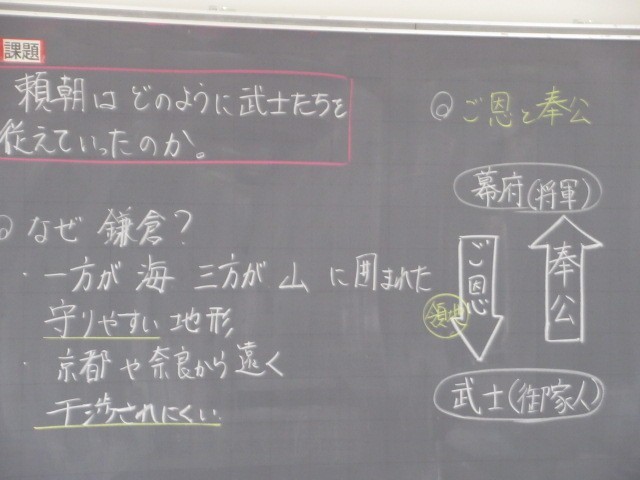 課題
頼朝はどのように武士たちを
従えていったのか。
◎なぜ鎌倉?
・一方が海 三方が山に囲まれた
守りやすい地形
・京都や奈良から遠く
干渉されにくい
◎ご恩と奉公
幕府(将軍)
ご恩
領地
奉公
武士(御家人)